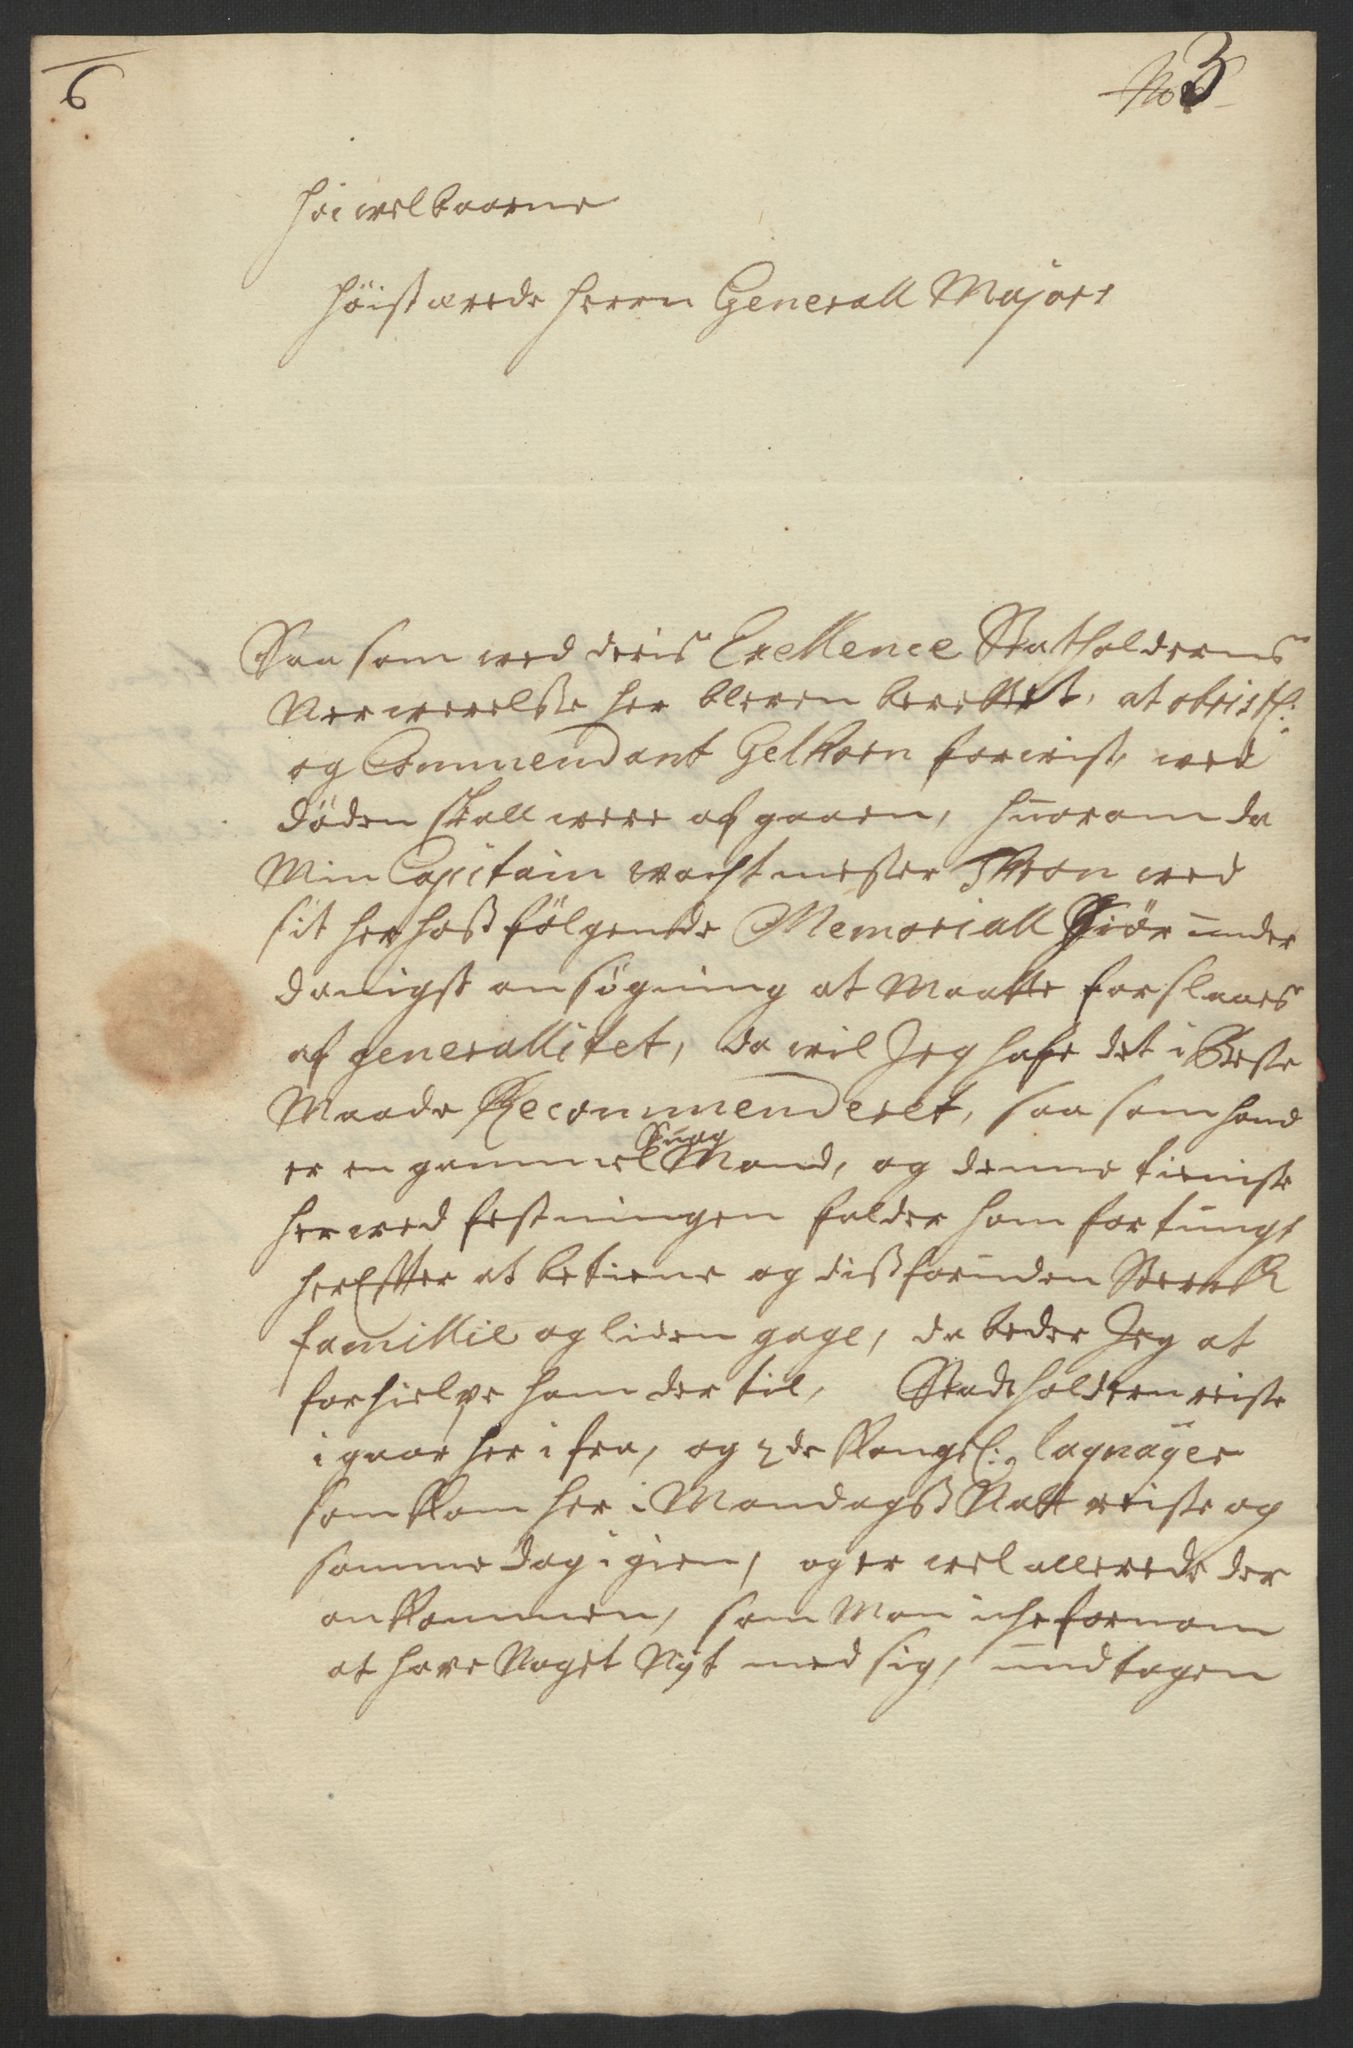 6
No 3
Høi welbaarne
Høist ærede Herrn Generall Majors
Saa som wed deris Exellence Statholderens
Nerwerelsse her bleven berettet, at obristl:
og Commendant Gelthorn forwist, wed
døden skall were af gaaen, huorom da
Min Capitain wachtmester Thron wed
sit her hoss følgende Memoriall Giør under
danigst ansøgning at Maatte forslaaes
af generallitet, da wil Jeg hafe det i Beste
Maade Recommenderet, saa som hand
er en gammel Suag Mand, og denne tieniste
her wed festningen falder ham for tungt
her Effter at betiene og dissforuden Sterck
famillie og liden gage, da beder Jeg at
forhielpe ham der til, Stadtholderen reiste
i gaar her i fra, og 2de Kongel: laquayer
som kom her i Mandags Natt reiste og
samme dag igien, og er wel allerede der
ankommen, som Man iche fornam
at have Noget Nyt med sig, undtagen